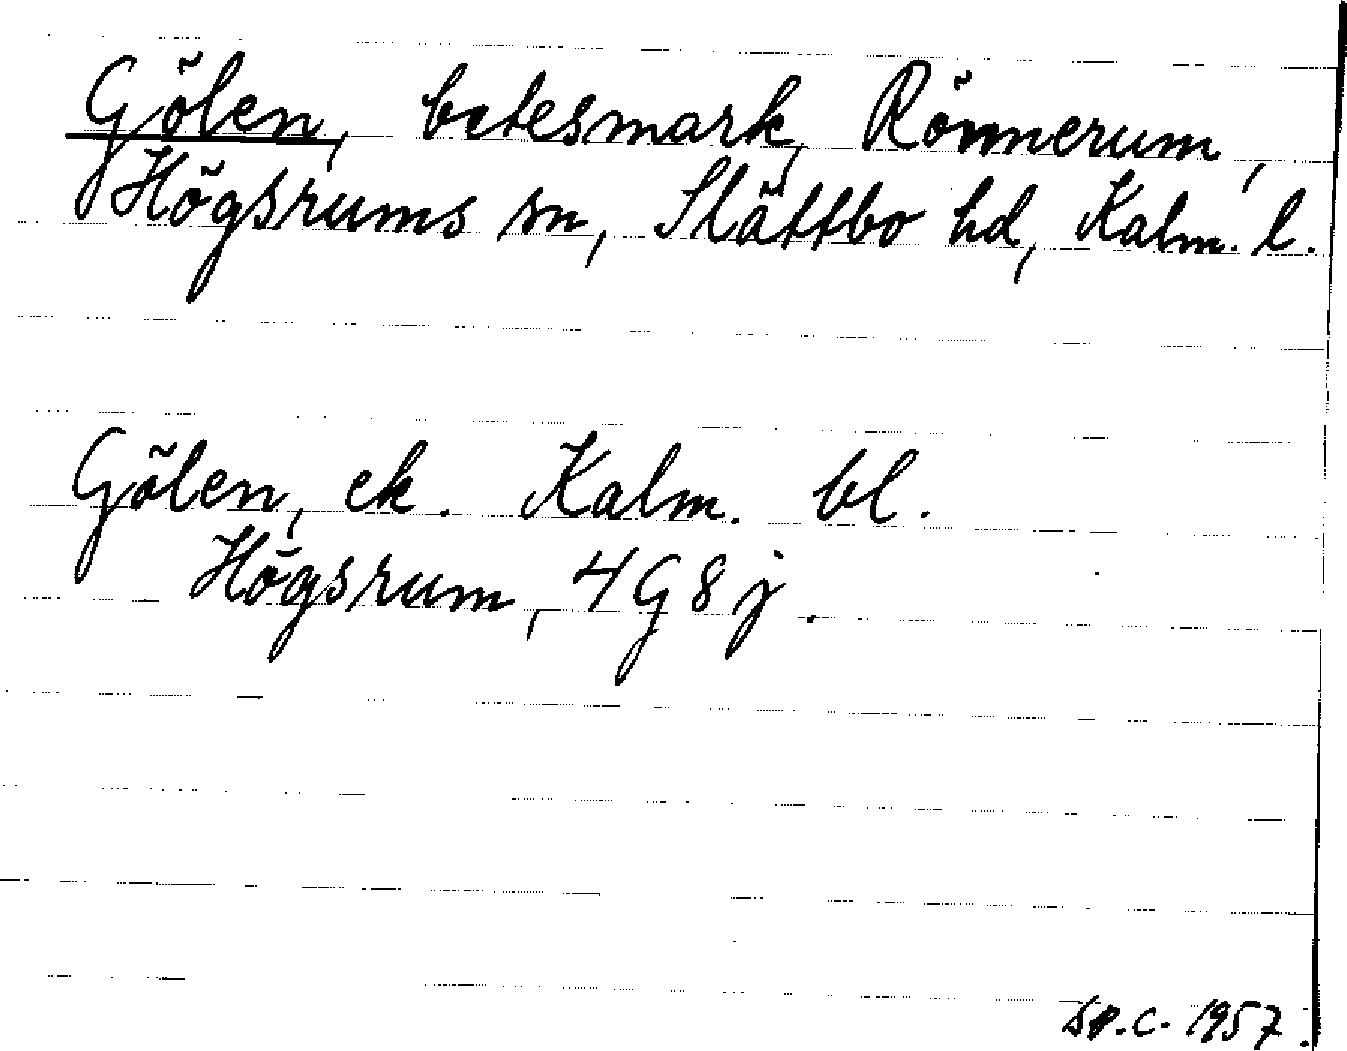 Gölen, betesmark, Rönnerum,
Högsrums sn, Slättbo hd, Kalm. l.
Gölen, ek. Kalm. bl.
Högsrum, 4G8j.
1957.